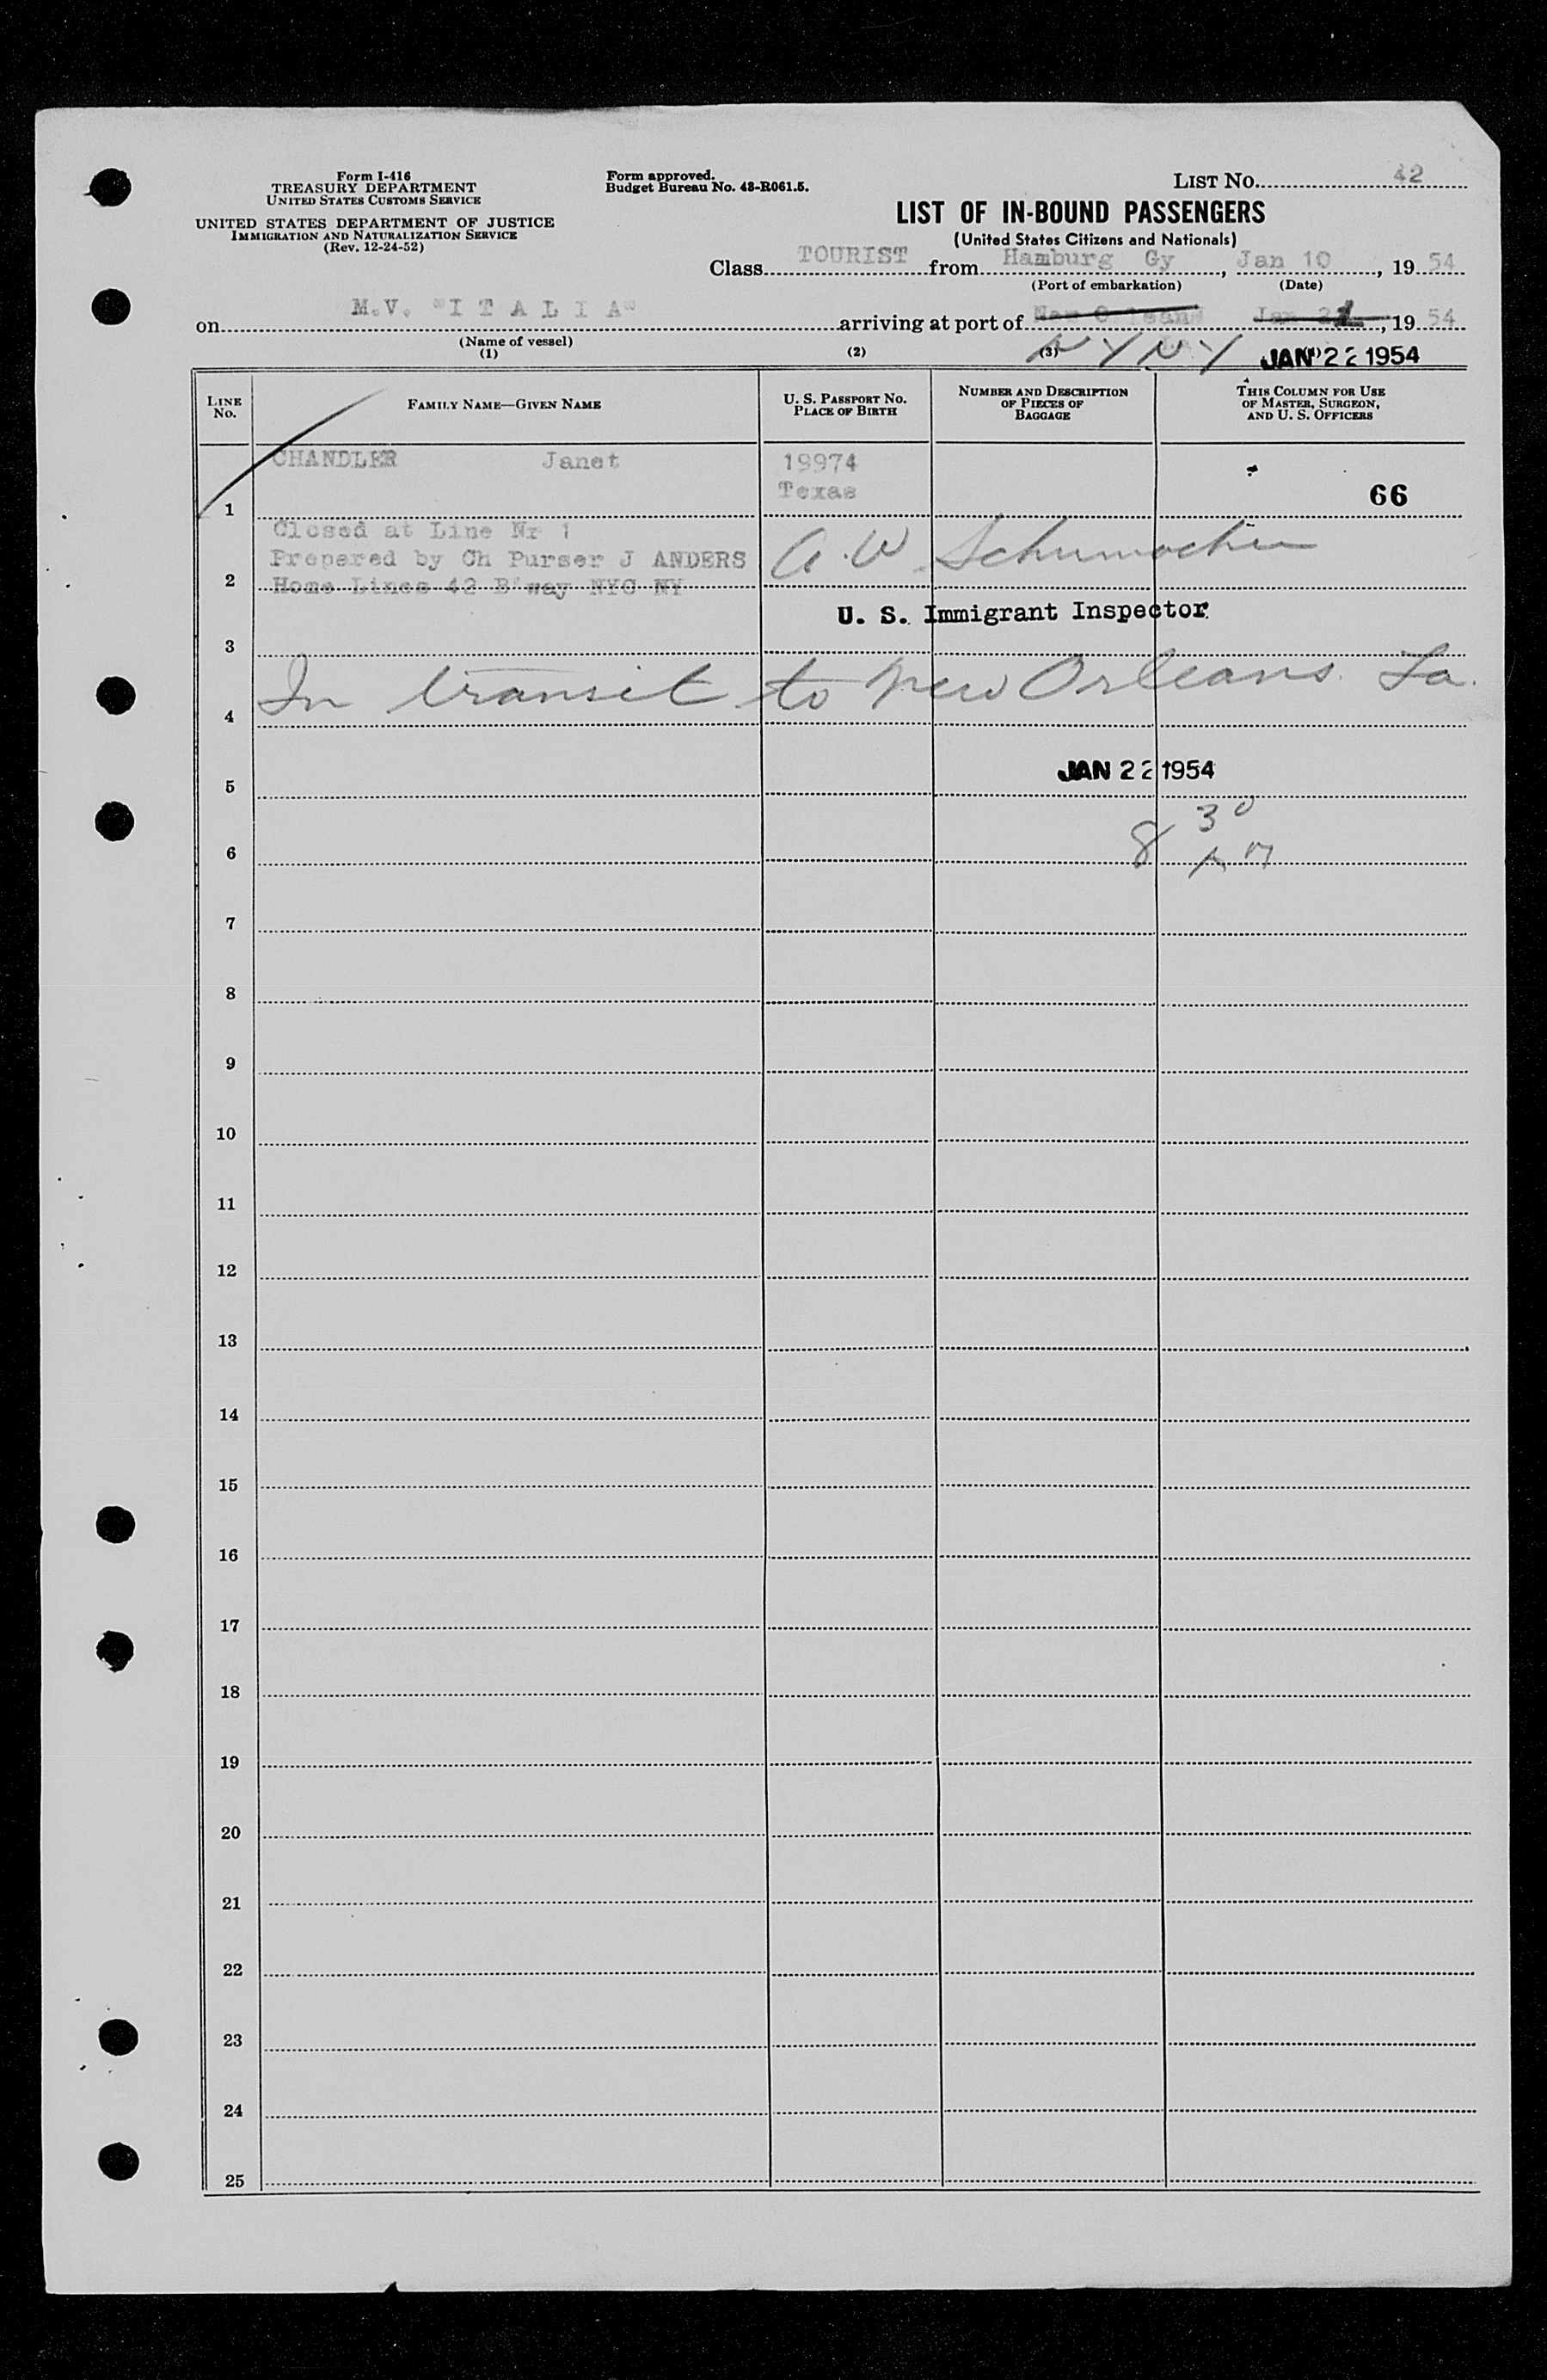 Form I-416
TREASURY DEPARTMENT
UNITED STATES CUSTOMS SERVICE
UNITED STATES DEPARTMENT OF JUSTICE
IMMIGRATION AND NATURALIZATION SERVICE
(Rev. 12-24-52)
Form approved.
Budget Bureau No. 43-R061.5.
LIST NO. 42
LIST OF IN-BOUND PASSENGERS
(United States Citizens and Nationals)
Class TOURIST from Hamburg Gy, Jan 10, 19 54
(Port of embarkation) (Date)
on M.V. "I T A L I A" arriving at port of New Orleans Jan , 19 54
(Name of vessel)
N Y N Y JAN 22 1954
(1) (2) (3)
LINE NO.
FAMILY NAME—GIVEN NAME
U. S. PASSPORT NO.
PLACE OF BIRTH
NUMBER AND DESCRIPTION
OF PIECES OF
BAGGAGE
THIS COLUMN FOR USE
OF MASTER, SURGEON,
AND U. S. OFFICERS
CHANDLER Janet 19974
Texas
1 66
Closed at Line Nr 1
Prepared by Ch Purser J ANDERS A. W Schumacher
2 Home Lines 42 B'way NYC NY
U. S. Immigrant Inspector
3
In transit to New Orleans La.
4
JAN 22 1954
5
8 30
AM
6
7
8
9
10
11
12
13
14
15
16
17
18
19
20
21
22
23
24
25